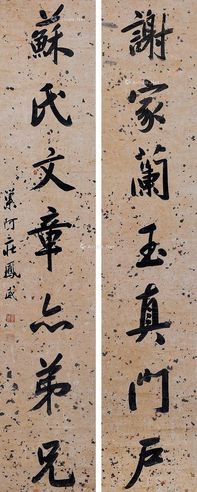 謝家蘭玉真門戶
蘇氏文章亦弟兄
莊鳳威